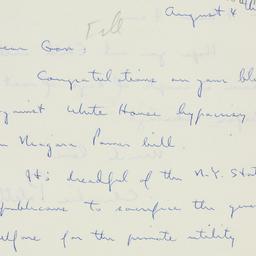 Fill
August 4th
ear Gov:
Congratulations on your bl
against White House hypocrisy
n Niagara Power bill.
It's dreadful of the N.Y. Stat
publicans to sacrifice the gen
elfare for the private utility